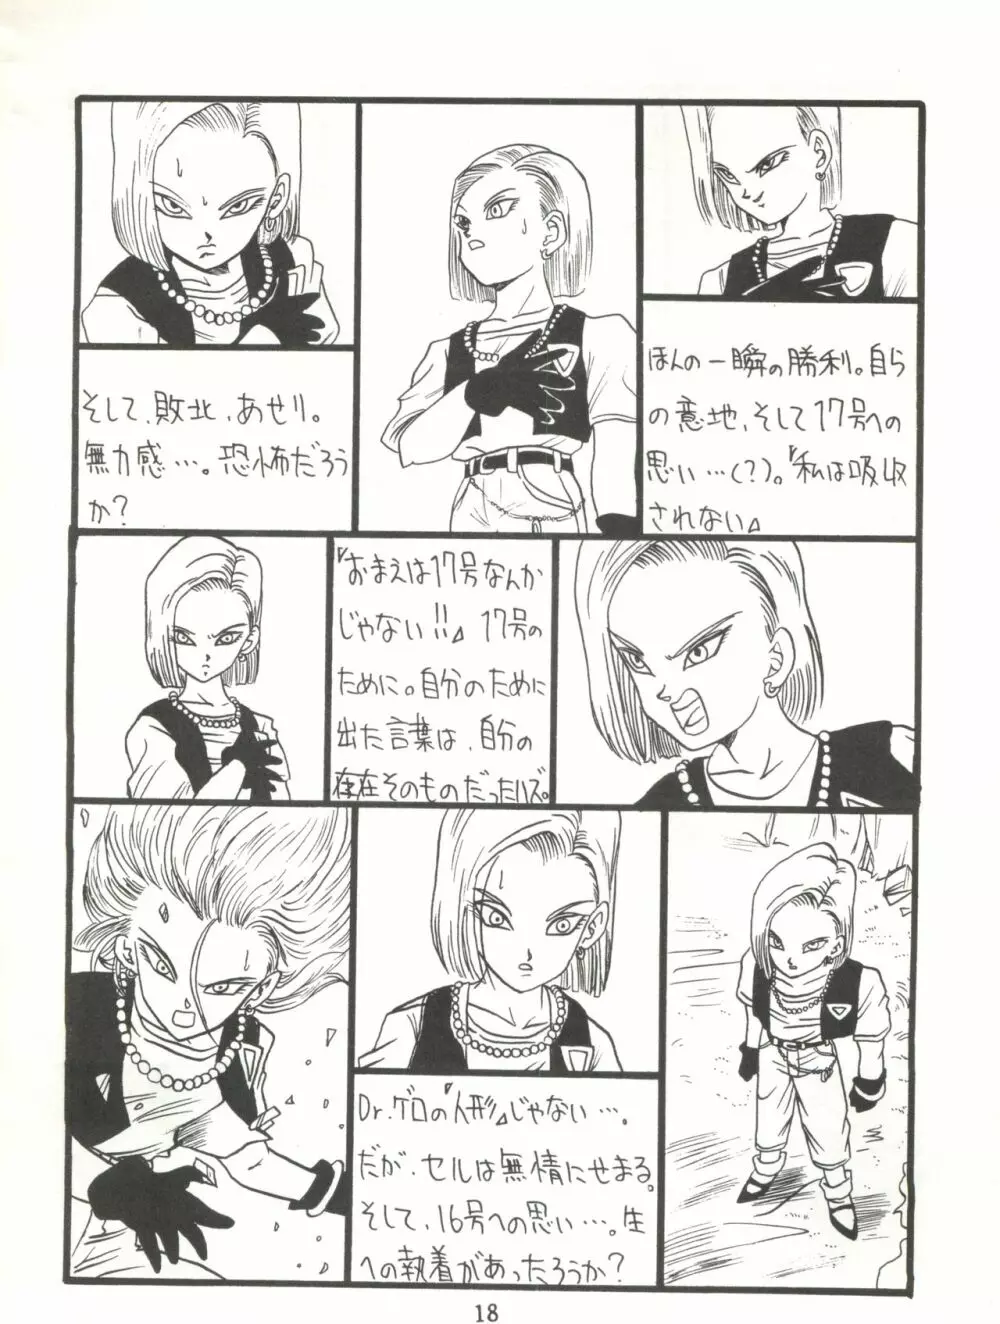 ほんの一瞬の勝利。自ら
の意地、そして17号への
思い…(?)。『私は吸収
されない』
そして、敗北、あせり。
無力感…。恐怖だろう
か?
『おまえは17号なんか
じゃない!!』17号の
ために。自分のために
出た言葉は、自分の
存在そのものだったハズ。
Dr.ゲロの『人形』じゃない…。
だが、セルは無情にせまる。
そして、16号への思い…。生
への執着があったろうか?
18